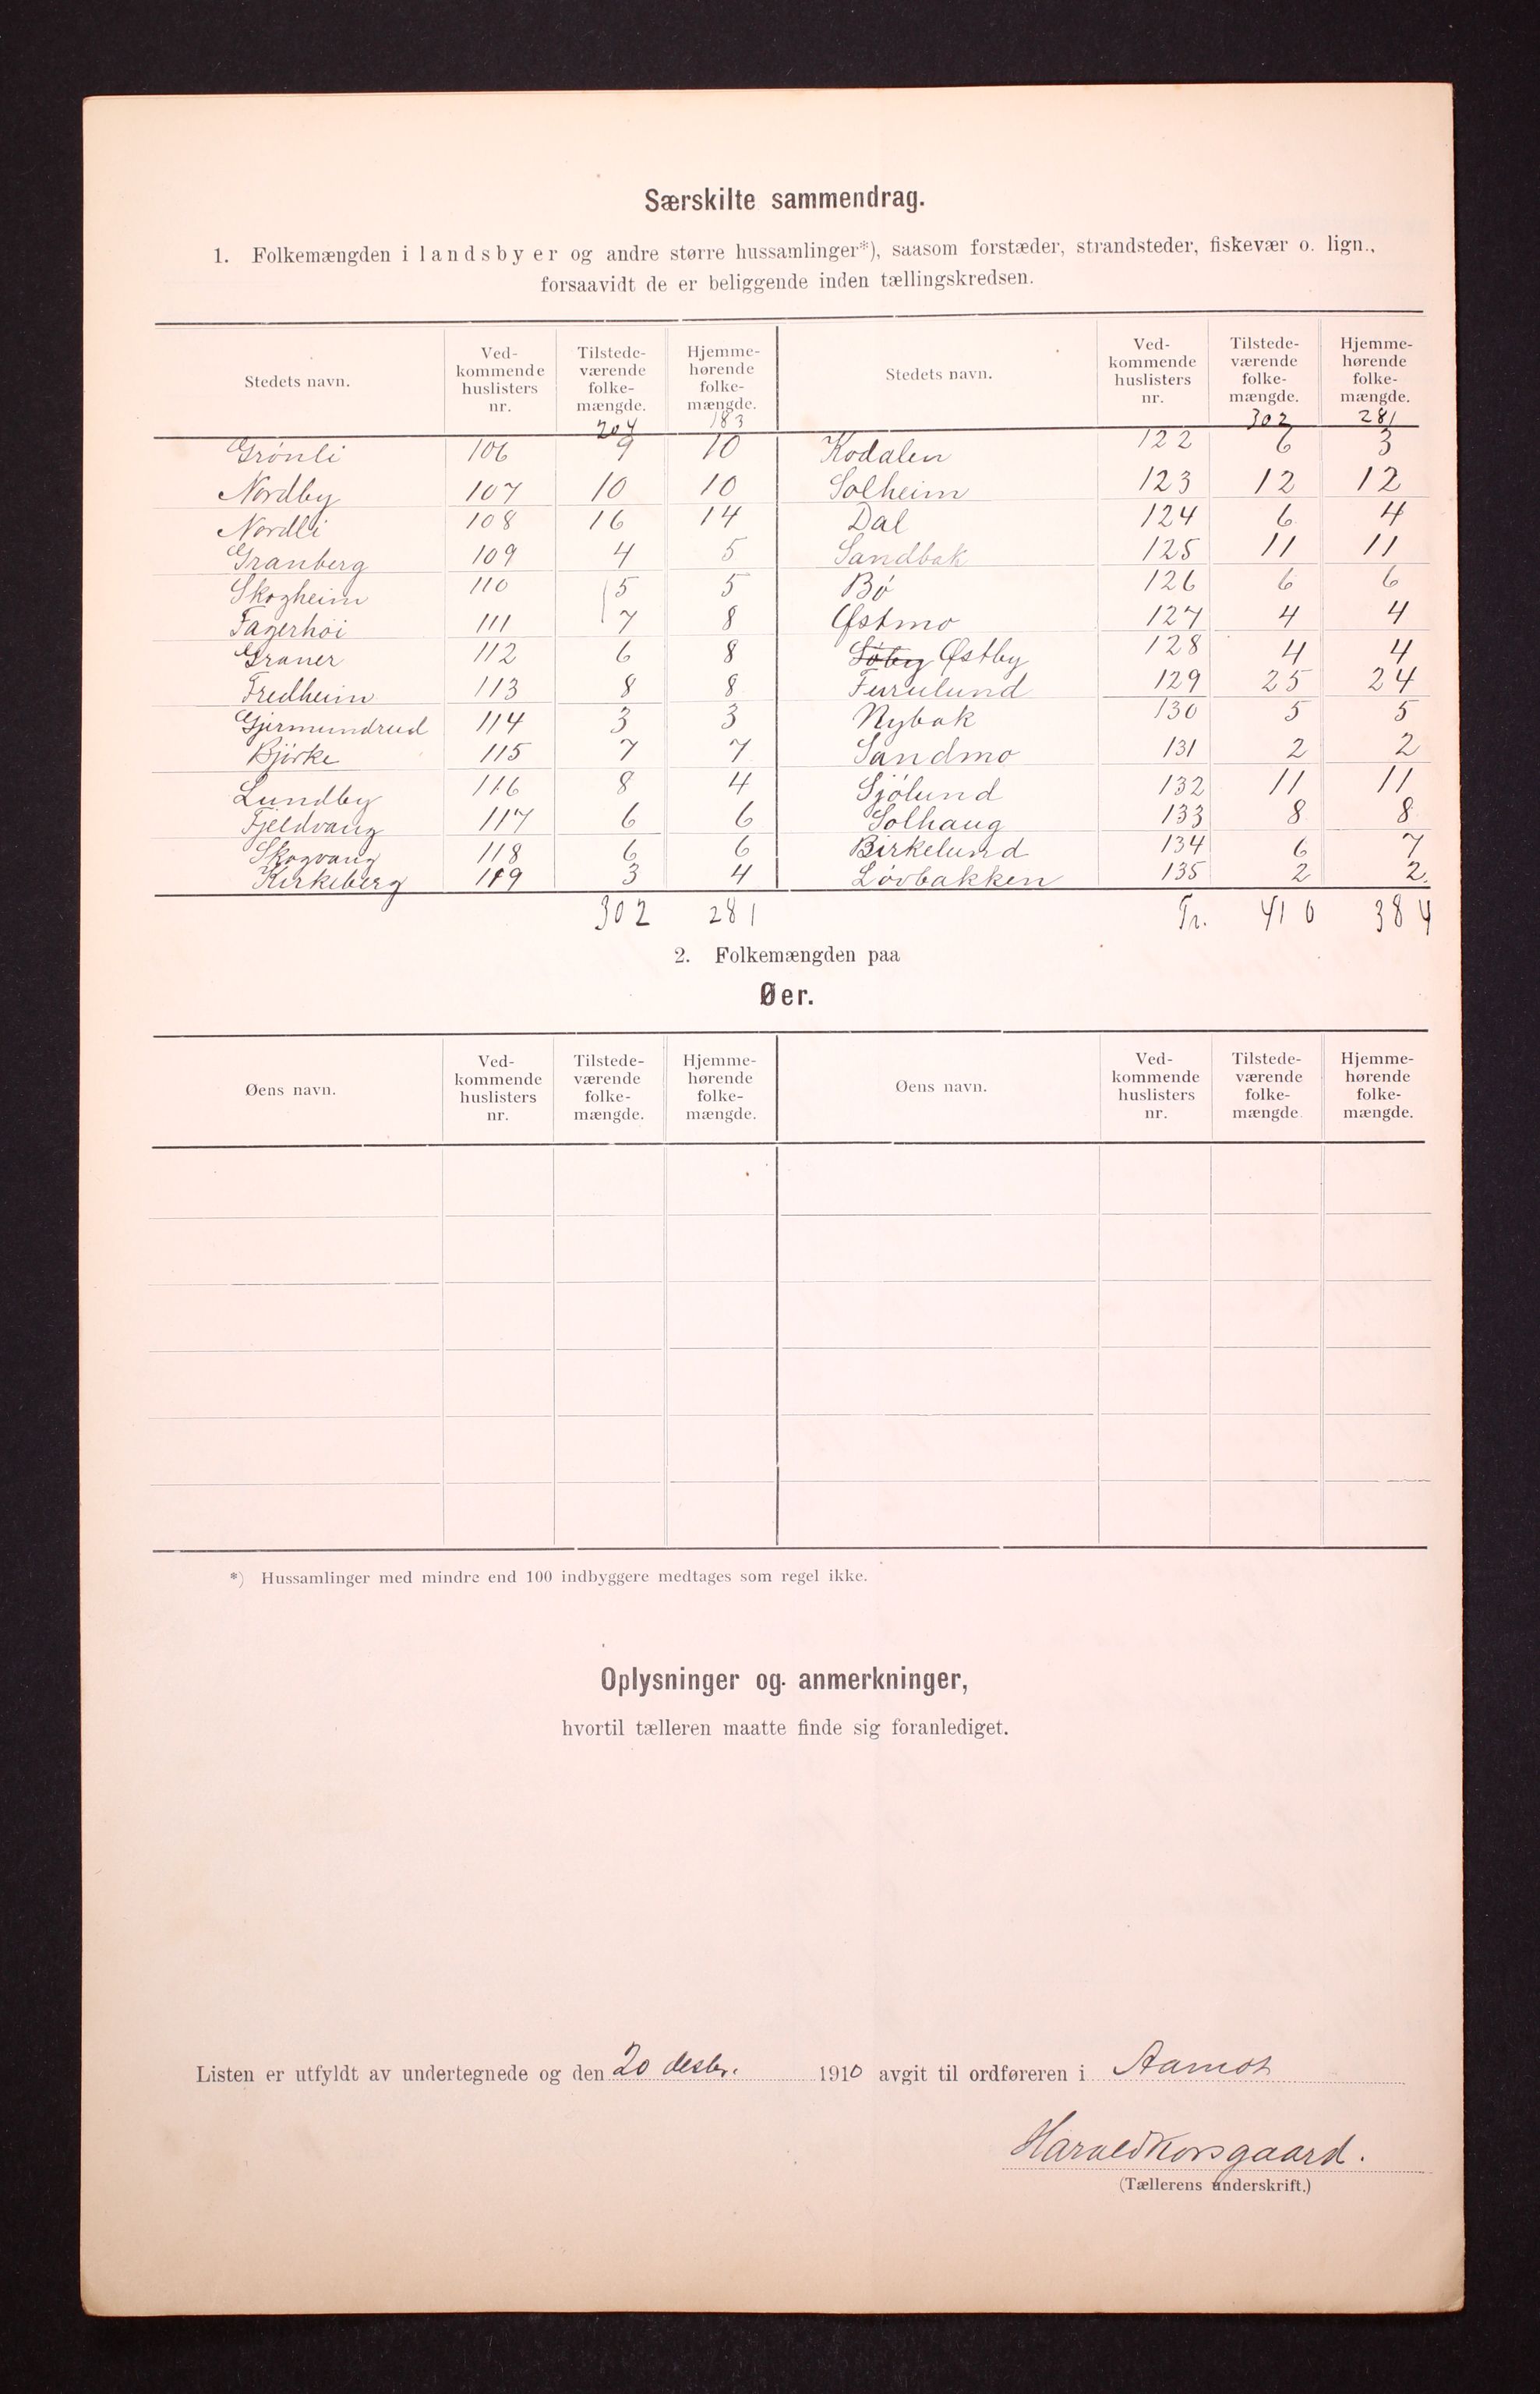 Særskilte sammendrag.
1. Folkemængden i landsbyer og andre større hussamlinger*), saasom forstæder, strandsteder, fiskevær o. lign.,
forsaavidt de er beliggende inden tællingskredsen.
Stedets navn. Ved-kommende huslisters nr. Tilstede-værende folke-mængde. Hjemme-hørende folke-mængde. Stedets navn. Ved-kommende huslisters nr. Tilstede-værende folke-mængde. Hjemme-hørende folke-mængde.
204 183 302 281
Grønli 106 9 10 Kodalen 122 6 3
Nordby 107 10 10 Solheim 123 12 12
Nordli 108 16 14 Dal 124 6 4
Granberg 109 4 5 Sandbak 125 11 11
Skogheim 110 5 5 Bø 126 6 6
Fagerhøi 111 7 8 Østmo 127 4 4
Graner 112 6 8 Østby 128 4 4
Fredheim 113 8 8 Furulund 129 25 24
Gjermundrud 114 3 3 Nybak 130 5 5
Bjørke 115 7 7 Sandmo 131 2 2
Lundby 116 8 4 Sjølund 132 11 11
Fjeldvang 117 6 6 Solhaug 133 8 8
Skogvang 118 6 6 Birkelund 134 6 7
Kirkeberg 119 3 4 Løvbakken 135 2 2.
302 281 Tr. 410 384
2. Folkemængden paa
Øer.
Øens navn. Ved-kommende huslisters nr. Tilstede-værende folke-mængde. Hjemme-hørende folke-mængde. Øens navn. Ved-kommende huslisters nr. Tilstede-værende folke-mængde Hjemme-hørende folke-mængde.
*) Hussamlinger med mindre end 100 indbyggere medtages som regel ikke.
Oplysninger og anmerkninger,
hvortil tælleren maatte finde sig foranlediget.
Listen er utfyldt av undertegnede og den 20 desbr. 1910 avgit til ordføreren i Aamot
Harald Korsgaard.
(Tællerens underskrift.)